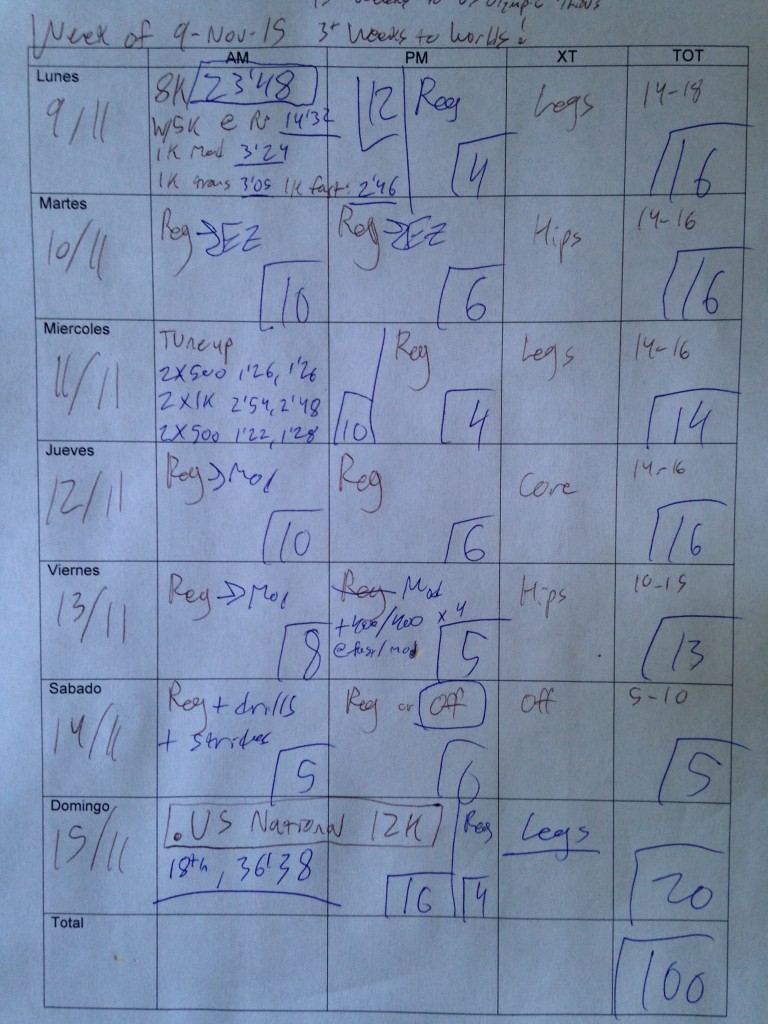 Week of 9-Nov-15 3+ weeks to worlds!
AM PM XT TOT
Lunes
9/11
8K 23'48
w/5K @ 14'32
1K mod 3'24
1K trans 3'05 1K fast: 2'46
12
Reg
4
Legs
14-18
16
Martes
10/11
Reg → EZ
10
Reg → EZ
6
Hips
14-16
16
Miercoles
11/11
Tuneup
2x500 1'26, 1'26
2x1K 2'54, 2'48
2x500 1'22, 1'28
10
Reg
4
Legs
14-16
14
Jueves
12/11
Reg → Mod
10
Reg
6
Core
14-16
16
Viernes
13/11
Reg → Mod
8
Reg Mod
+400/400 x 4
@fast/mod
5
Hips
10-15
13
Sabado
14/11
Reg + drills
+ strides
5
Reg or Off
0
Off
5-10
5
Domingo
15/11
.US National 12K
18th, 36'38
16
Reg
4
Legs
20
Total
100